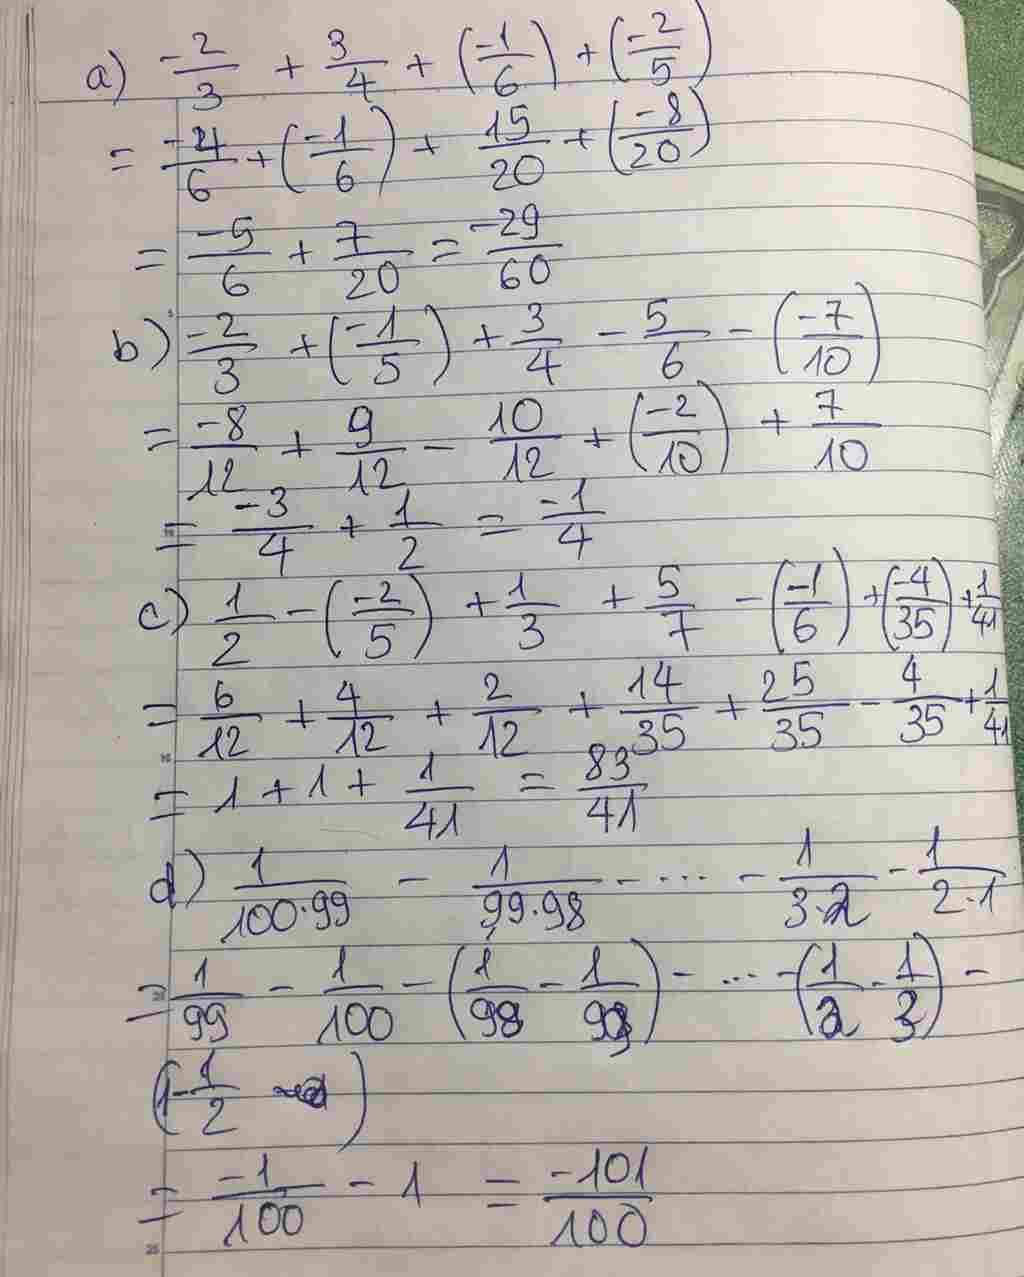 a) -2/3 + 3/4 + (-1/6) + (-2/5)
= -4/6 + (-1/6) + 15/20 + (-8/20)
= -5/6 + 7/20 = -29/60
b) -2/3 + (-1/5) + 3/4 - 5/6 - (-7/10)
= -8/12 + 9/12 - 10/12 + (-2/10) + 7/10
= -3/4 + 1/2 = -1/4
c) 1/2 - (-2/5) + 1/3 + 5/7 - (-1/6) + (-4/35) + 1/41
= 6/12 + 4/12 + 2/12 + 14/35 + 25/35 - 4/35 + 1/41
= 1 + 1 + 1/41 = 83/41
d) 1/100·99 - 1/99·98 - ... - 1/3·2 - 1/2·1
= 1/99 - 1/100 - (1/98 - 1/99) - ... - (1/2 - 1/3) -
(1 - 1/2)
= -1/100 - 1 = -101/100